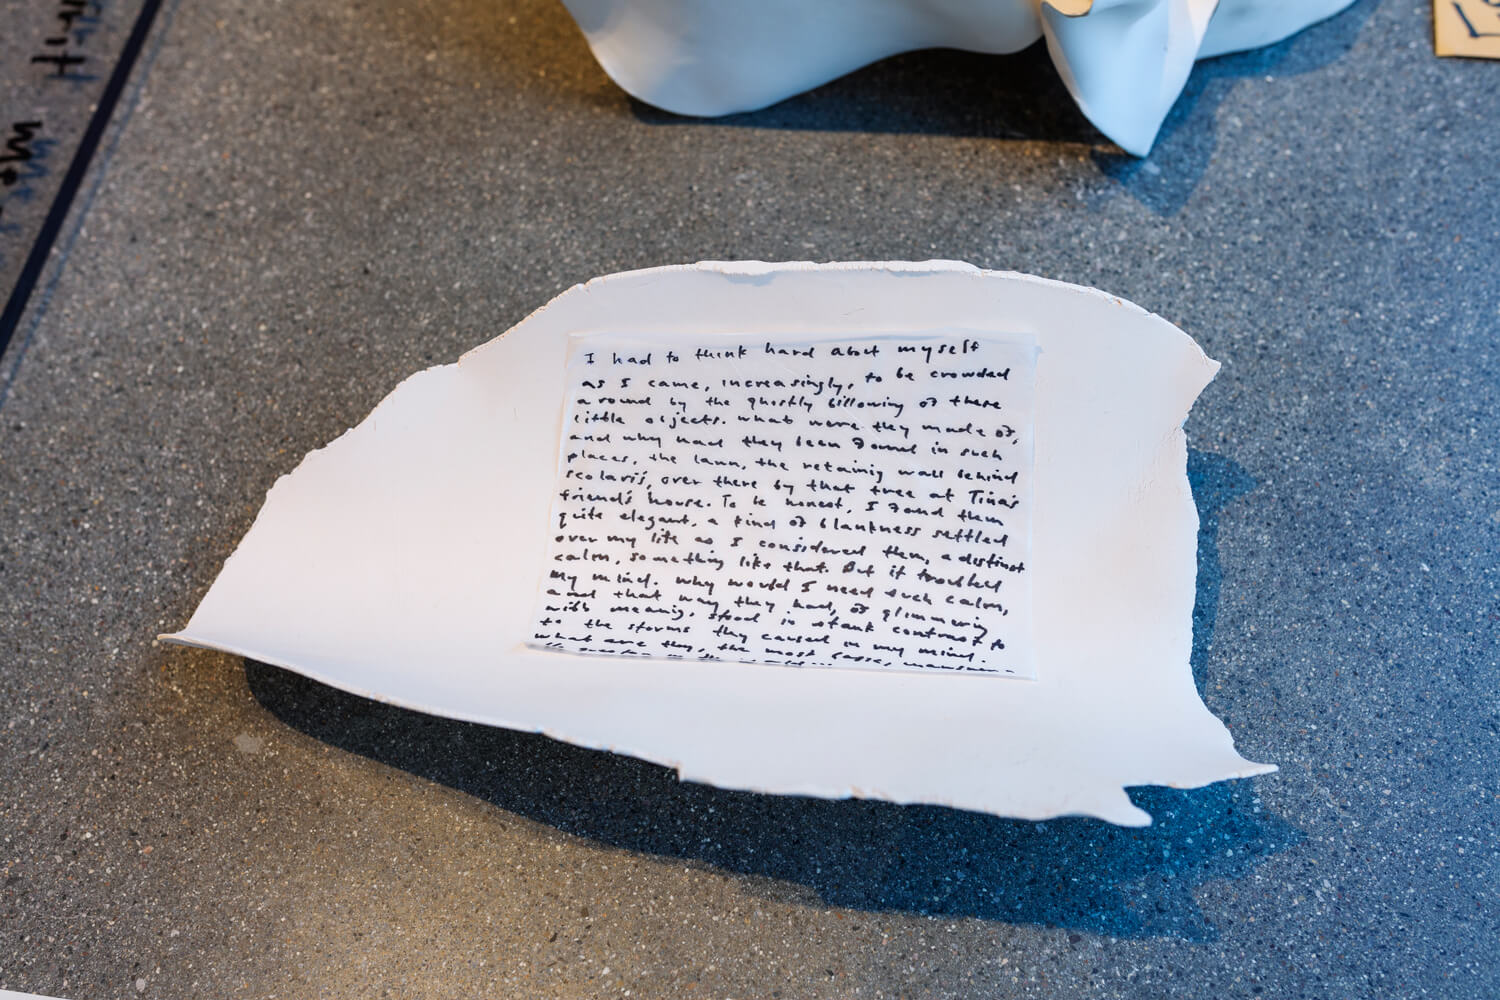 I had to think hard about myself
as I came, increasingly, to be crowded
around by the ghostly billowing of these
little objects. What were they made of,
and why had they been found in such
places, the lawn, the retaining wall behind
Scolari's, over there by that tree at Tina's
friend's house. To be honest, I found them
quite elegant, a kind of blankness settled
over my life as I considered them, a distinct
calm, something like that. But it troubled
my mind. Why would I need such calm,
and that way they had, of glimmering
with meaning, stood in stark contrast to
to the storms they caused in my mind.
What are they, the most